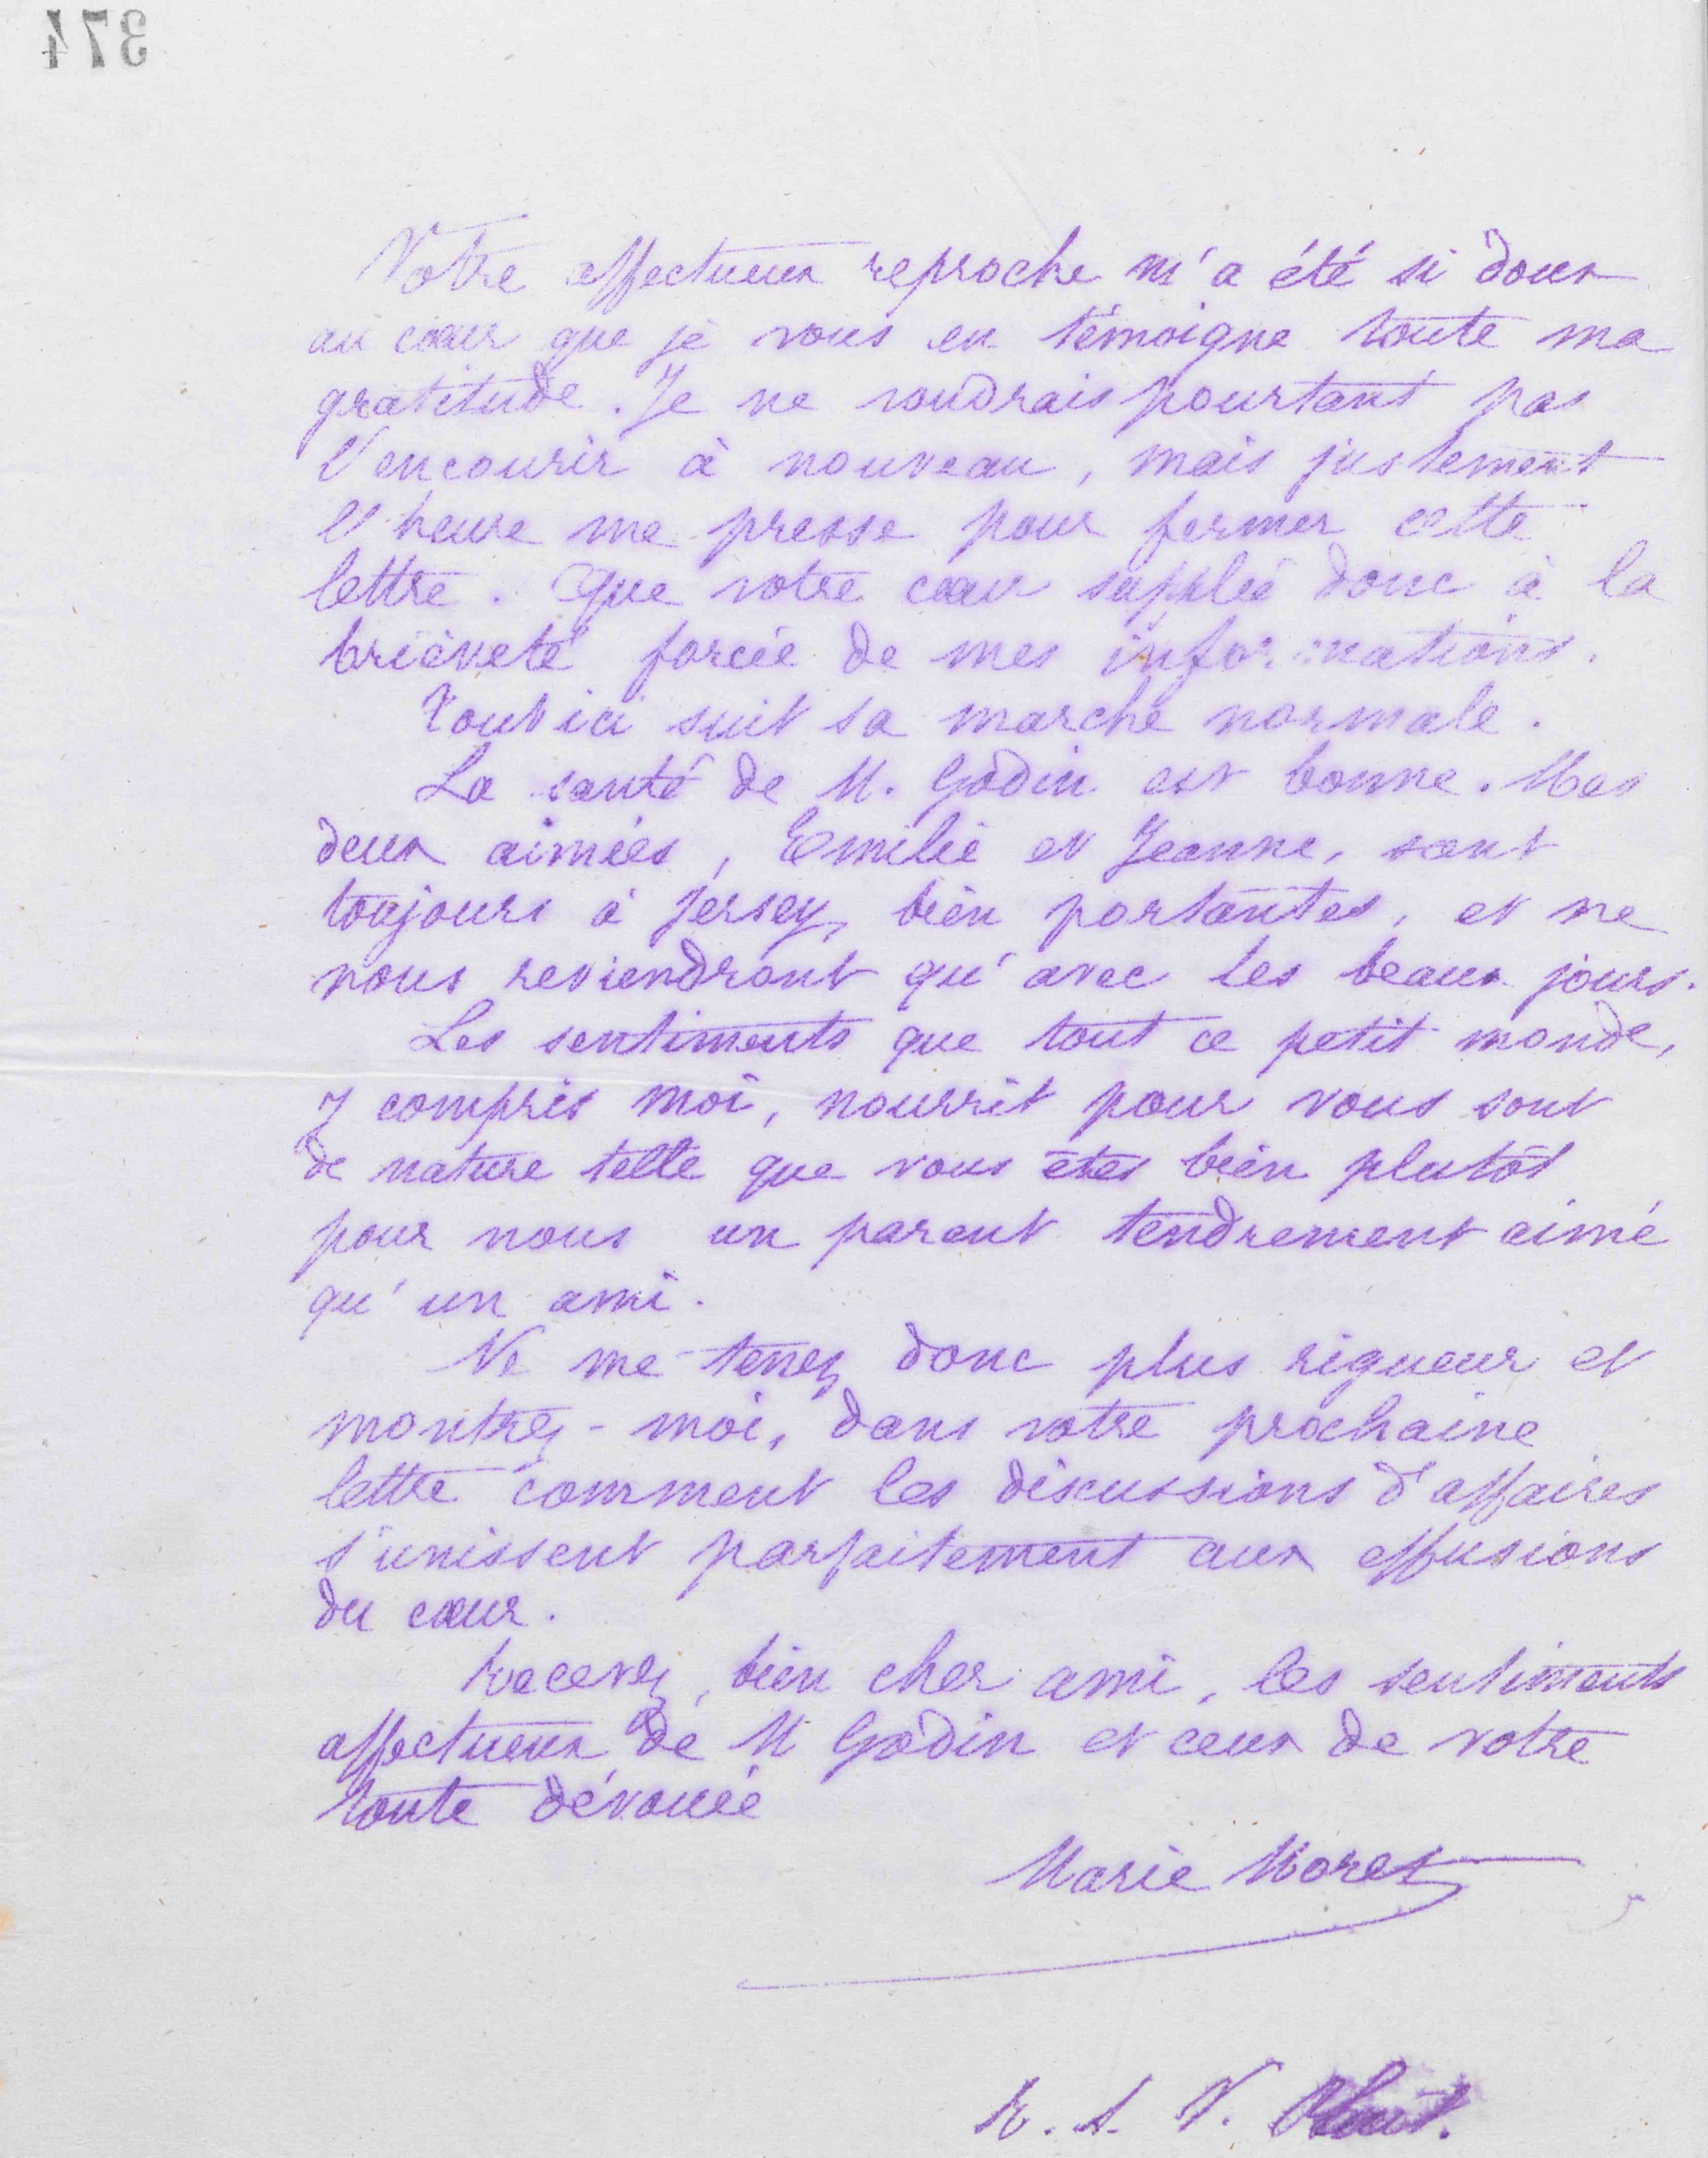 374
Votre affectueux reproche m'a été si doux
au cœur que je vous en témoigne toute ma
gratitude. Je ne voudrais pourtant pas
l'encourir à nouveau, mais justement
l'heure me presse pour fermer cette
lettre. Que votre cœur supplée donc à la
brièveté forcée de mes informations.
Tout ici suit sa marche normale.
La santé de M. Godin est bonne. Mes
deux aimées, Emilie et Jeanne, sont
toujours à Jersey, bien portantes, et ne
nous reviendront qu'avec les beaux jours.
Les sentiments que tout ce petit monde,
y compris moi, nourrit pour vous sont
de nature telle que vous êtes bien plutôt
pour nous un parent tendrement aimé
qu'un ami.
Ne me tenez donc plus rigueur et
montrez-moi, dans votre prochaine
lettre comment les discussions d'affaires
s'unissent parfaitement aux effusions
du cœur.
Recevez, bien cher ami, les sentiments
affectueux de M Godin et ceux de votre
toute dévouée
Marie Moret
R. S. V.